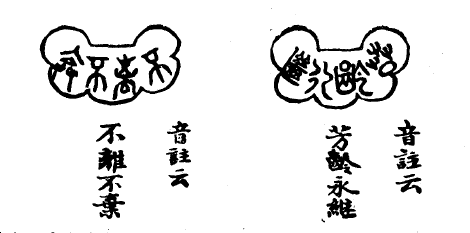 音註云
芳齡永繼
音註云
不離不棄